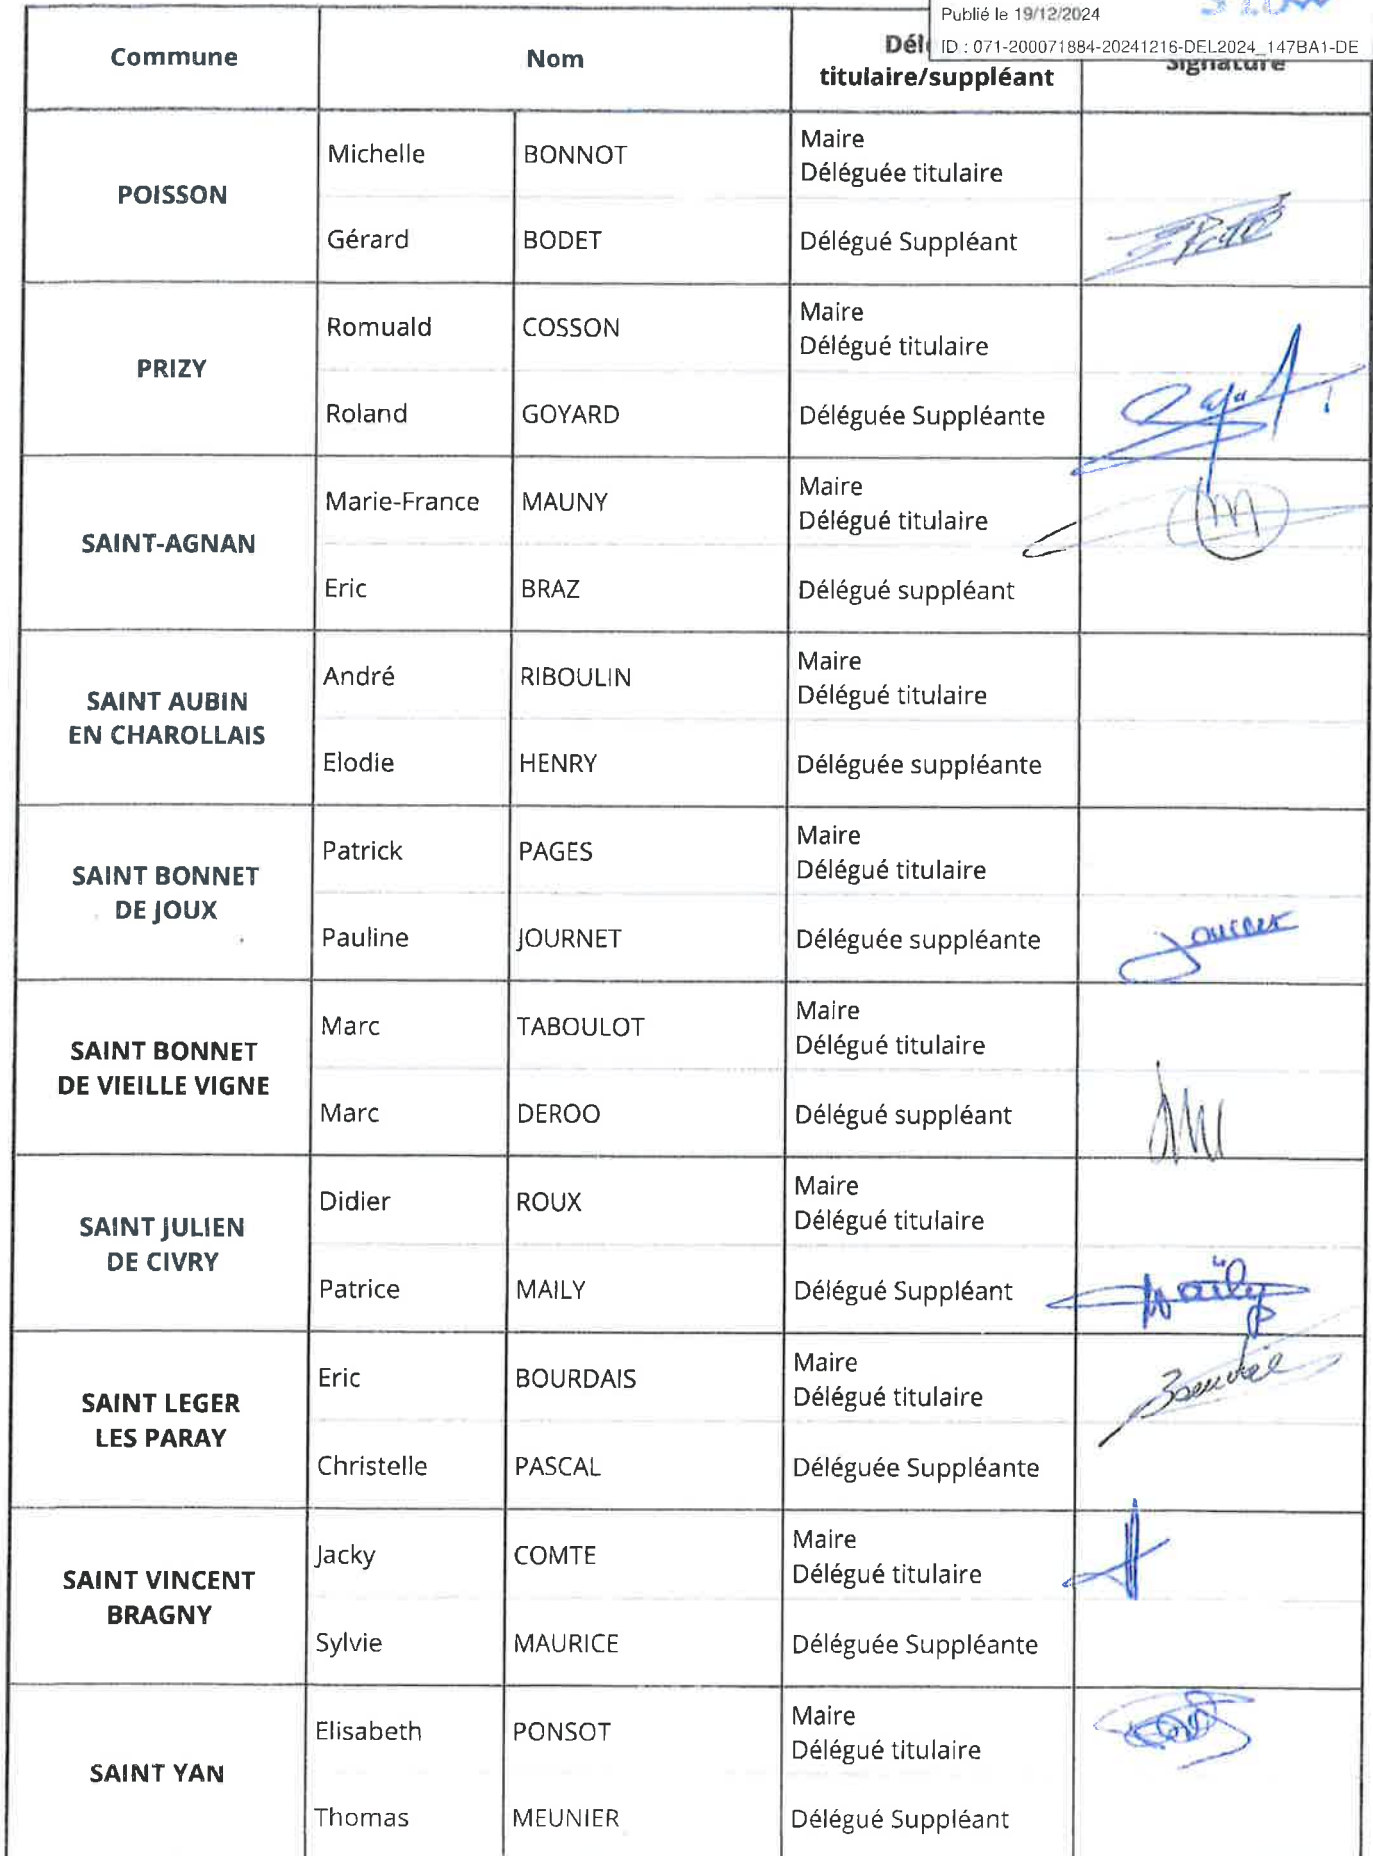 Publié le 19/12/2024
ID : 071-200071884-20241216-DEL2024_147BA1-DE
Commune
Nom
titulaire/suppléant
Signature
POISSON
Michelle
BONNOT
Maire
Déléguée titulaire
Gérard
BODET
Délégué Suppléant
PRIZY
Romuald
COSSON
Maire
Délégué titulaire
Roland
GOYARD
Déléguée Suppléante
SAINT-AGNAN
Marie-France
MAUNY
Maire
Délégué titulaire
Eric
BRAZ
Délégué suppléant
SAINT AUBIN
EN CHAROLLAIS
André
RIBOULIN
Maire
Délégué titulaire
Elodie
HENRY
Déléguée suppléante
SAINT BONNET
DE JOUX
Patrick
PAGES
Maire
Délégué titulaire
Pauline
JOURNET
Déléguée suppléante
SAINT BONNET
DE VIEILLE VIGNE
Marc
TABOULOT
Maire
Délégué titulaire
Marc
DEROO
Délégué suppléant
SAINT JULIEN
DE CIVRY
Didier
ROUX
Maire
Délégué titulaire
Patrice
MAILY
Délégué Suppléant
Maily
SAINT LEGER
LES PARAY
Eric
BOURDAIS
Maire
Délégué titulaire
Christelle
PASCAL
Déléguée Suppléante
SAINT VINCENT
BRAGNY
Jacky
COMTE
Maire
Délégué titulaire
Sylvie
MAURICE
Déléguée Suppléante
SAINT YAN
Elisabeth
PONSOT
Maire
Délégué titulaire
Thomas
MEUNIER
Délégué Suppléant